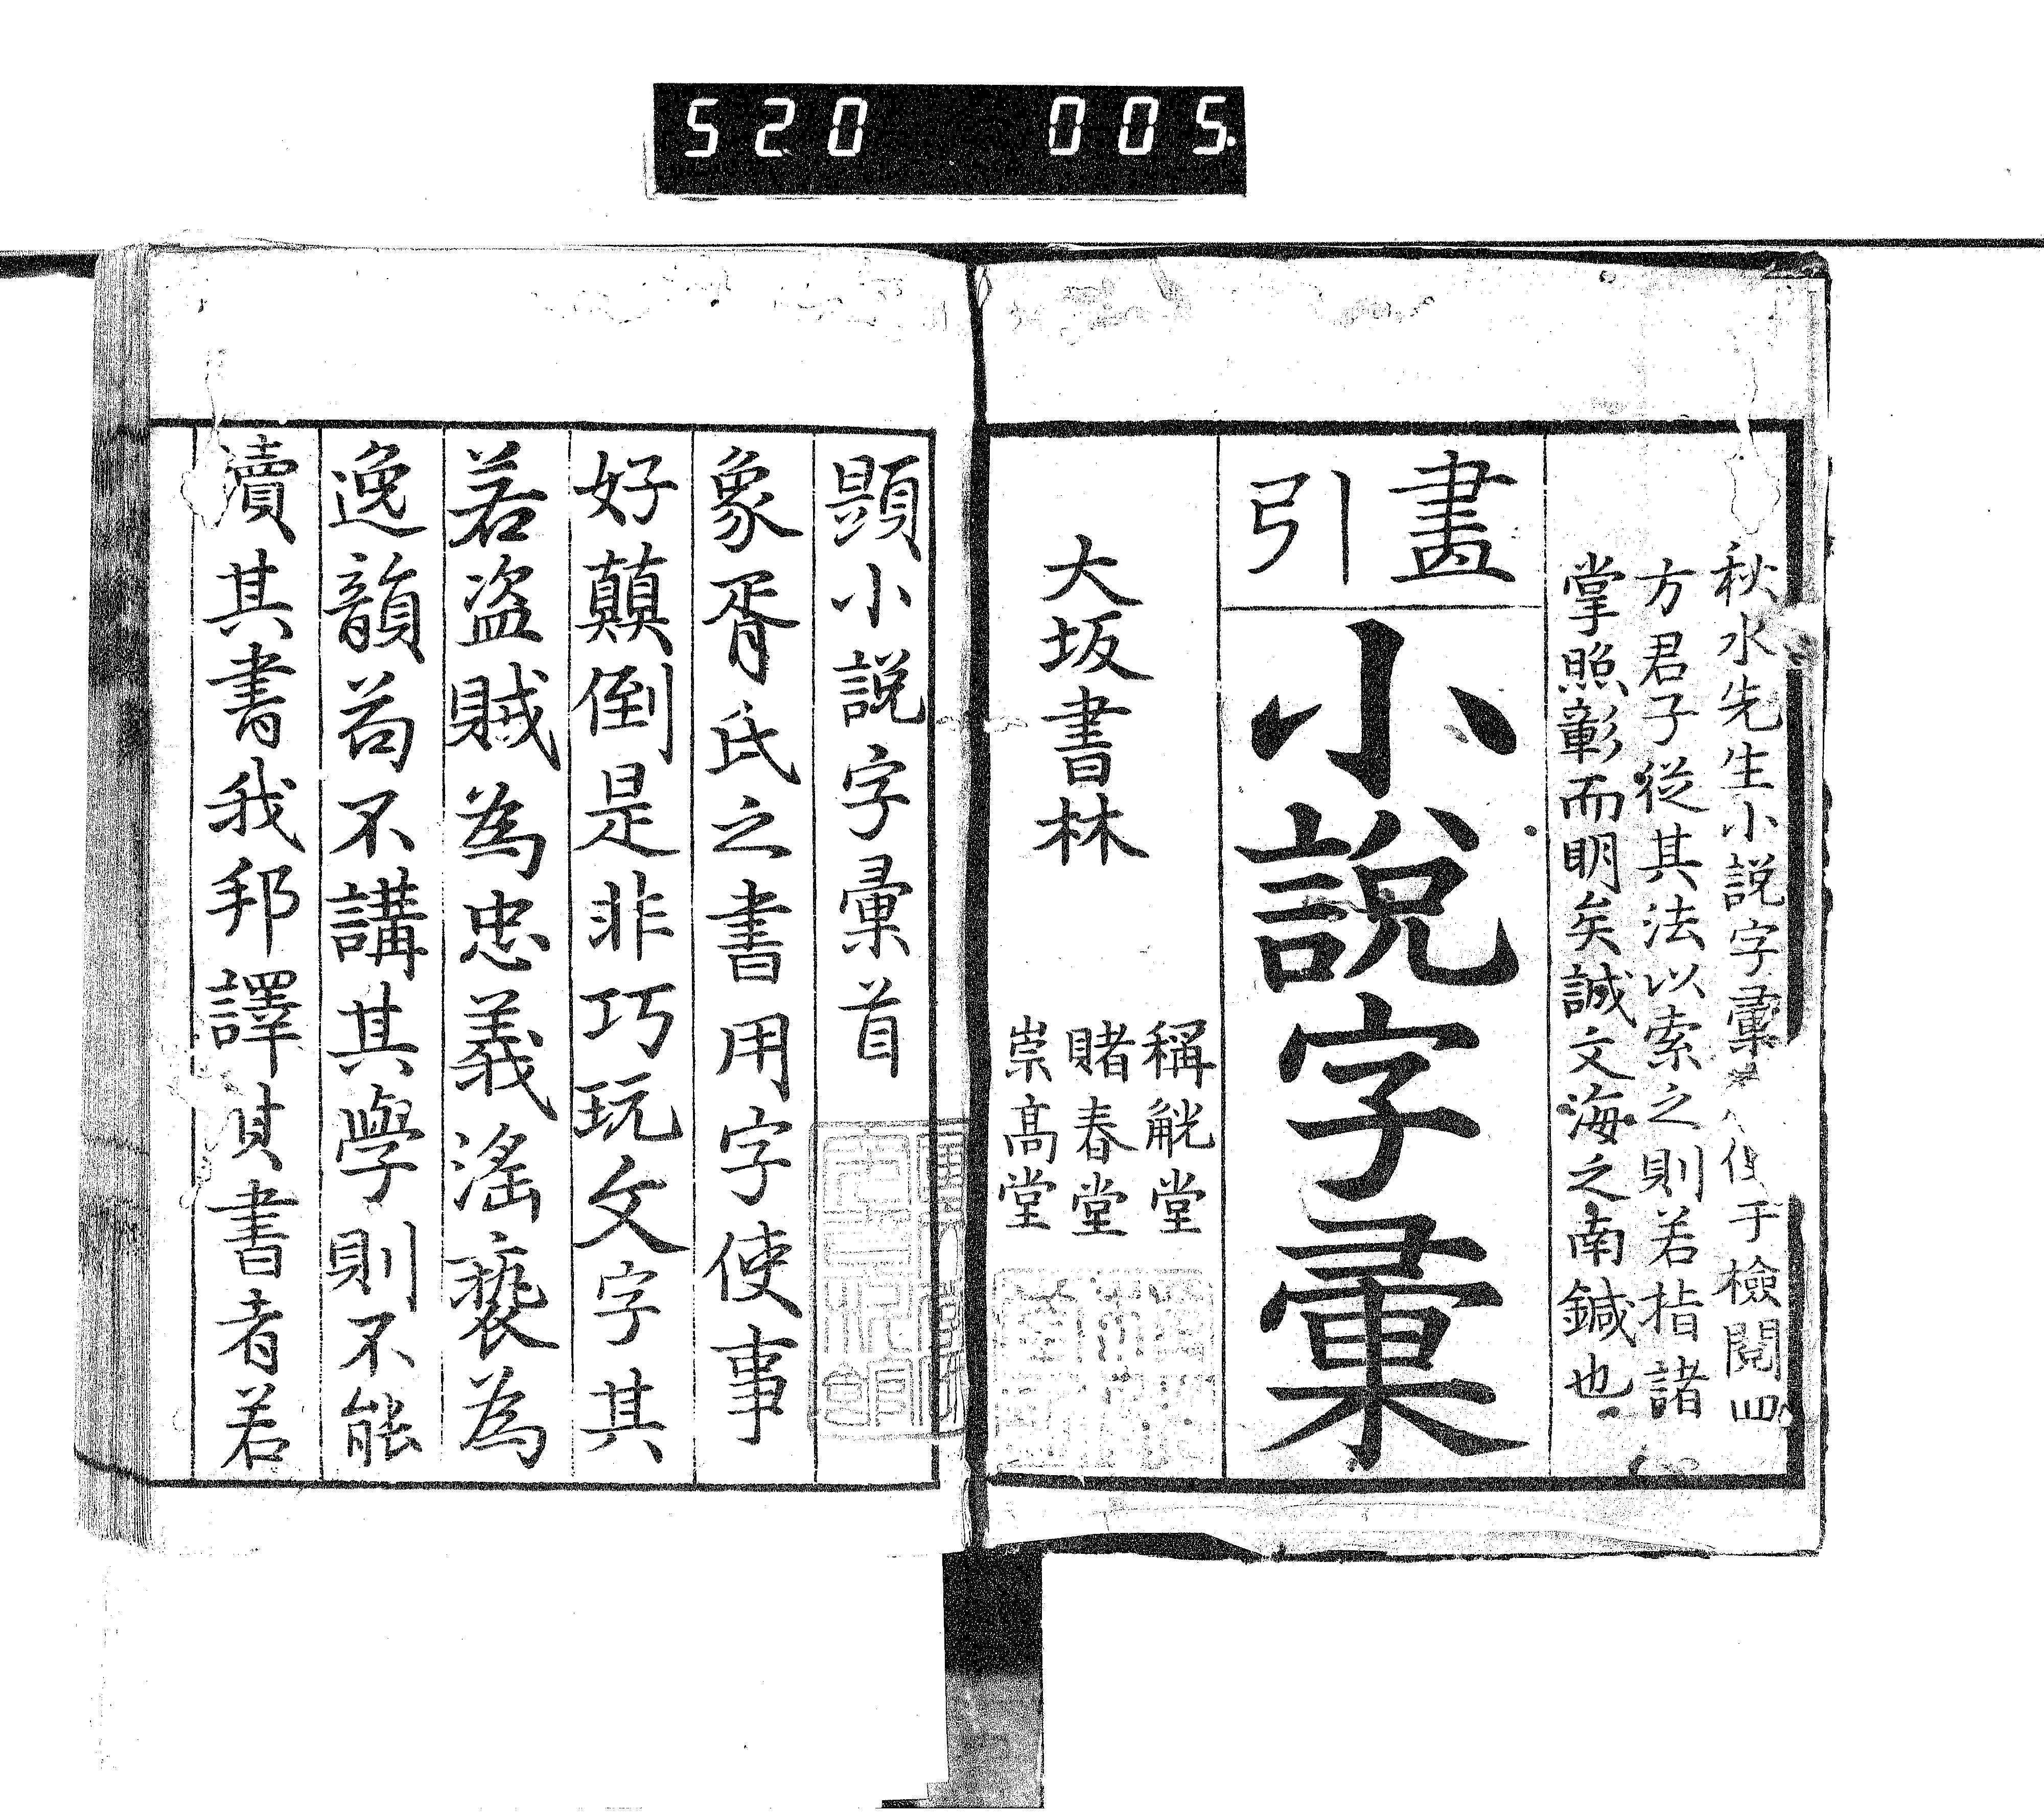 520 005
秋水先生小說字彙 使于檢閱四
方君子從其法以索之則若指諸
掌照彰而明矣誠文海之南鍼也
畫引
小說字彙
大坂書林
稱觥堂
賭春堂
崇高堂
題小說字彙首
象胥氏之書用字使事
好顛倒是非巧玩文字其
若盗賊為忠義滛褻為
逸韻苟不講其學則不能
瀆其書我邦譯其書者若